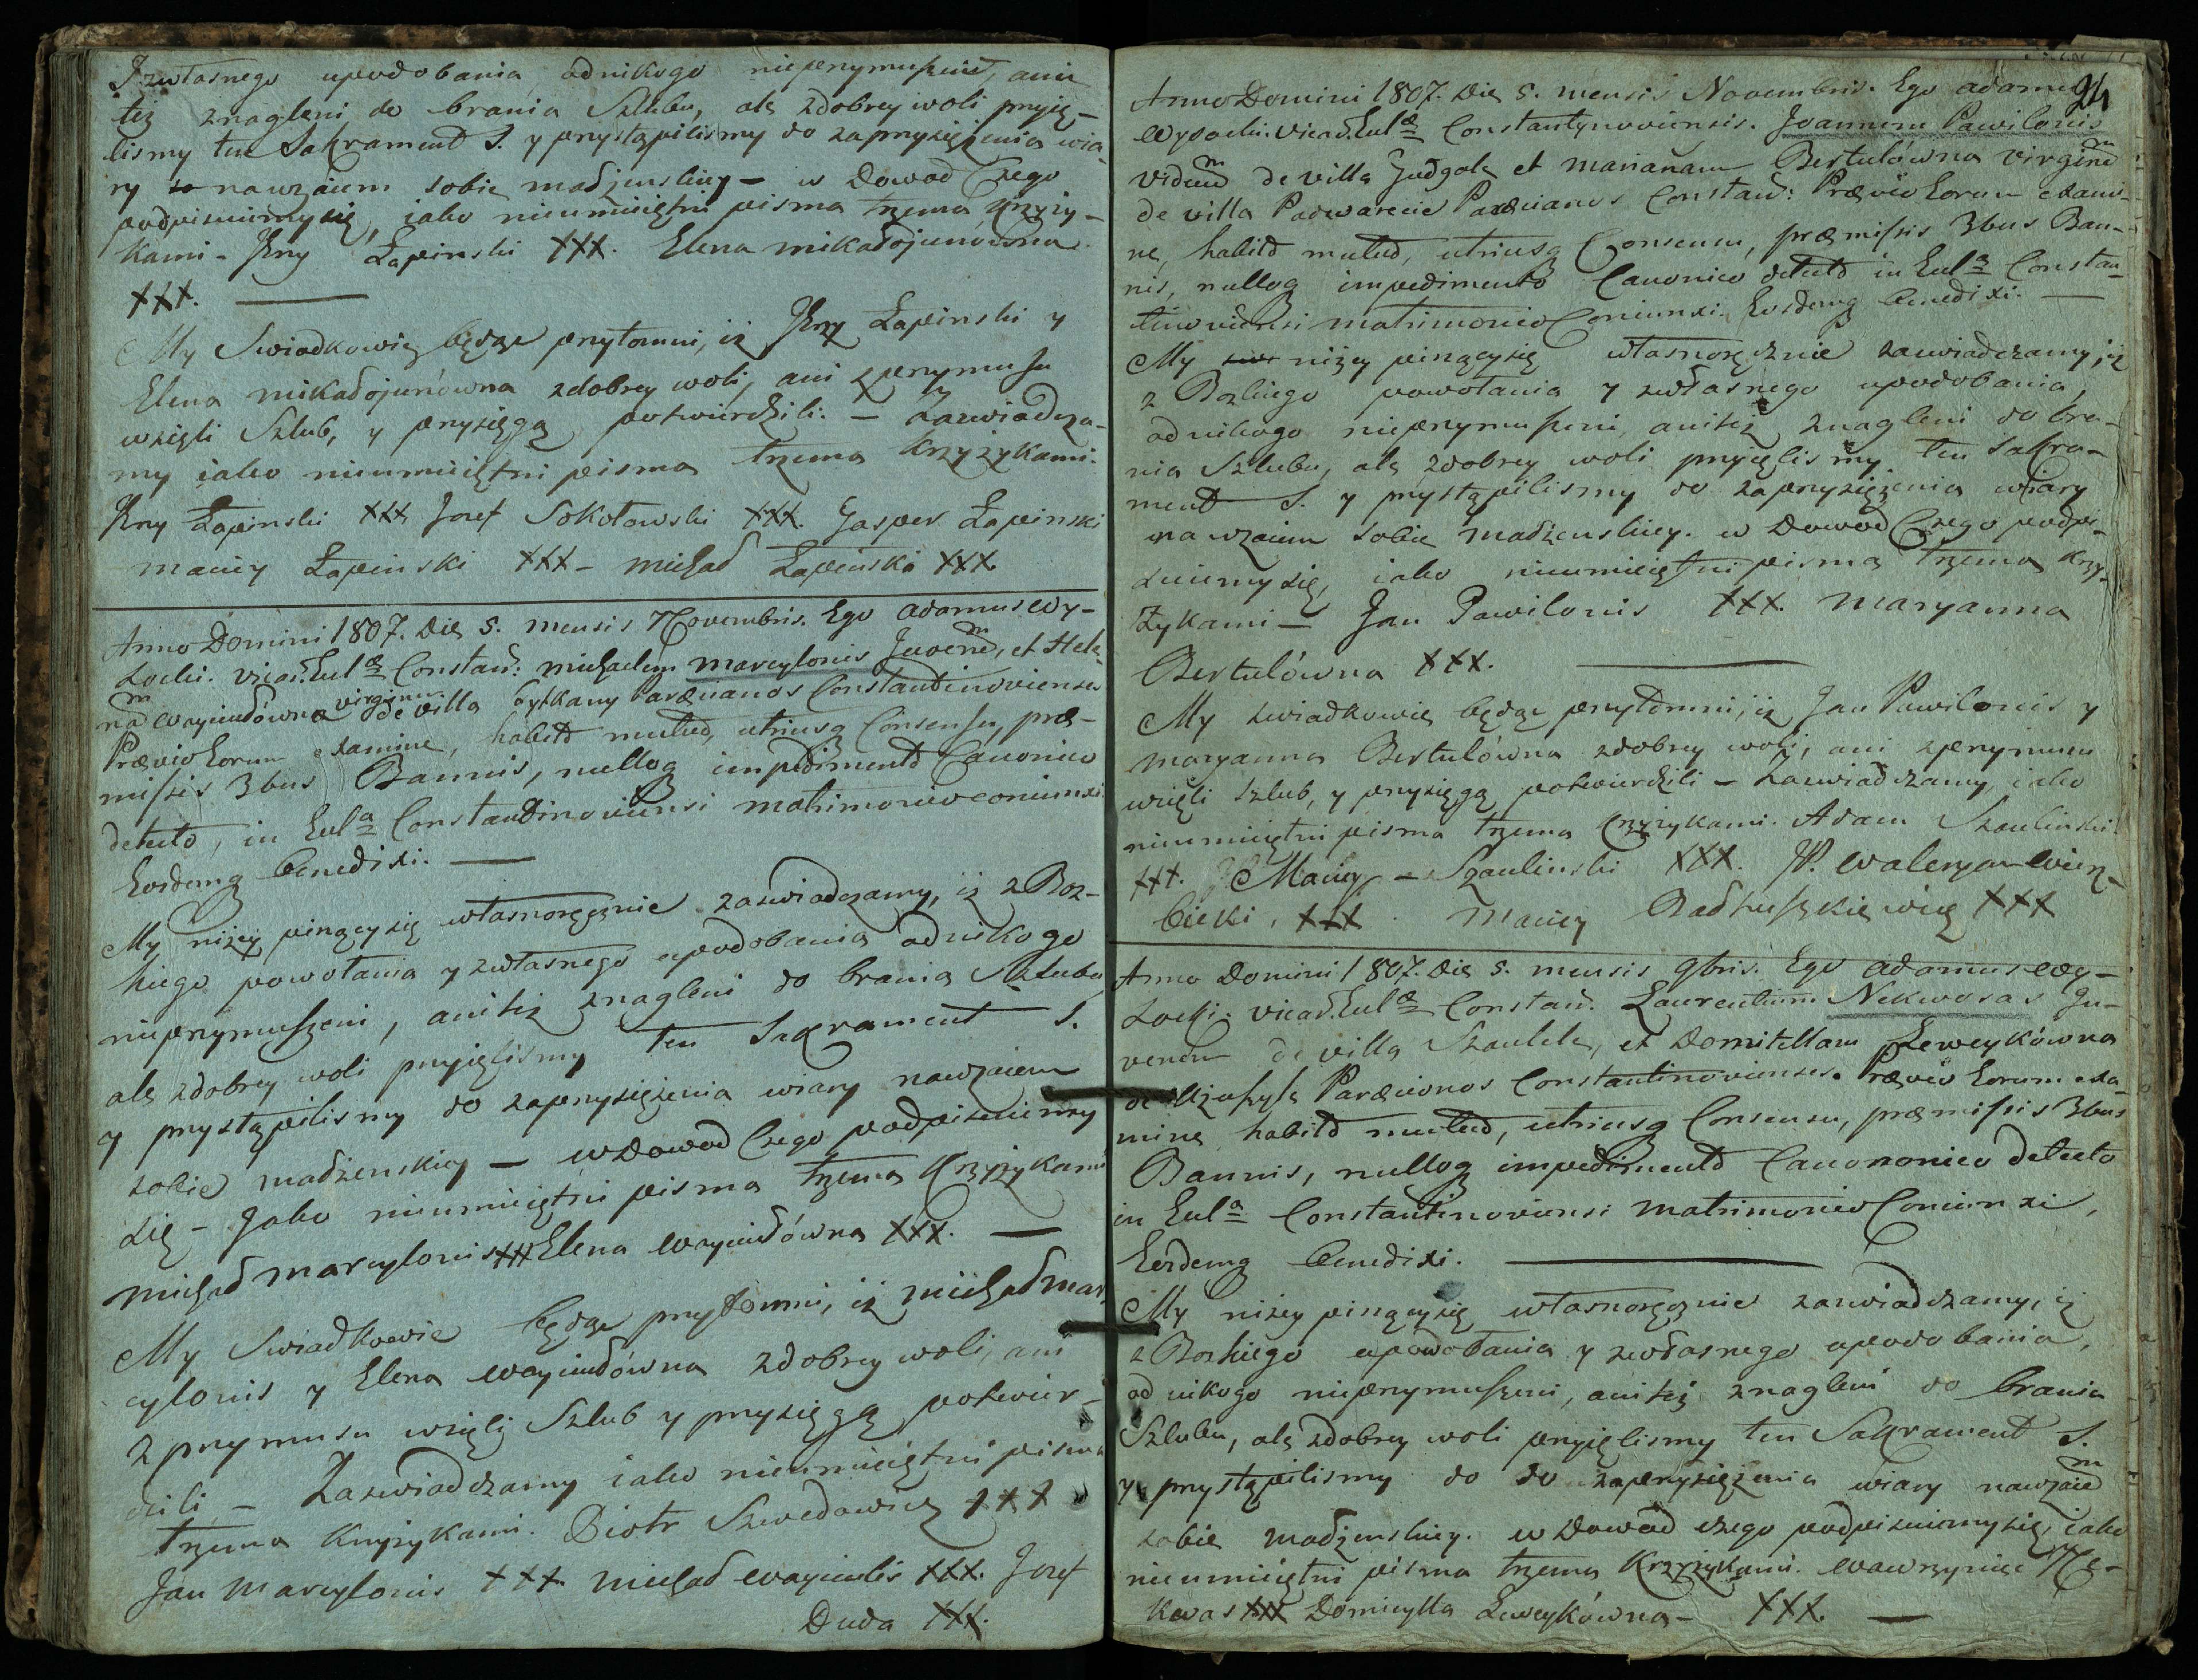 Izwłasnego upodobania odnikogo nieprzymuszeni, ani
też znagleni do brania Szlubu, ale zdobrey woli przyię-
lismy ten Sakrament S. y przystąpilismy do zaprzysiężenia wia-
ry nawzaiem sobie madżenskiey – w Dowod Czego
podpisuiemysię, iako nieumieiętni pisma trzema krzyży-
kami – Jrzy Łapinski XXX. Elena mikałojunówna
XXX.
My Swiadkowie będąc przytomni, iż Jrzy Łapinski y
Elena mikałojunówna zdobrey woli, ani z przymusu
wzięli Szlub, y przysięgą potwierdzili. – Zaswiadcza-
my iako nieumieiętni pisma trzema krzyżykami.
Jrzy Łapinski XXX Jozef Sokołowski XXX. Gasper Łapinski
maciey Łapinski XXX – michał Łapinski XXX.
Anno Domini 1807. Die 5. mensis Novembris. Ego adamus wy-
socki. vicar. Eulæ Constan: michaelem marcylonis Juvenem, et Hele-
nam wayciulówna virginem de villa Paræcianos Constantinovienses
Prævio Eorum examine, habito mutuo, utriusq Consensu, præ-
missis 3bus Bannis, nulloq impedimento Canonico
detecto, in Eulª Constantinoviensi matrimonio coniunxi
Eosdemq benedixi.
My niżey piszącysię własnoręcznie zaswiadczamy, iż z Boz-
kiego powołania y zwłasnego upodobania odnikogo
nieprzymuszeni, aniteż znagleni do brania Szlubu
ale zdobrey woli przyięlismy ten Sakrament S.
y przystąpilismy do zaprzysiężenia wiary nawzaiem
sobie madżenskiey – wdowod Czego podpisuiemy
się – Jako nieumieiętni pisma trzema Krzyżykami
michał marcylonis XXX Elena wayciulówna XXX.
My Swiadkowie będąc przytomni, iż michał mar-
cylonis y Elena wayciulówna zdobrey woli, ani
z przymusu wzięli Szlub y przysięgą potwier-
dzili – Zaswiadczamy iako nieumieiętni pisma
trzema krzyżykami. Piotr Szwedowicz XXX
Jan marcylonis XXX michał wayciulis XXX. Jozef
Duda XXX.
24
Anno Domini 1807. Die 5. mensis Novembris. Ego adamus
wysocki. vicar. Eulæ Constantynoviensis. Joannem Pawilonis
viduum de villa Judgale et mariañam Bertulówna virginem
de villa Padwarecie Paræcianos Constan: Prævio Eorum exami-
ne, habito mutuo, utriusq Consensu, præmissis 3bus Ban-
nis, nulloq impedimento Canonico detecto in Eulª Constan-
tinoviensi matrimonio Coniunxi. Eosdemq benedixi.
My niżey piszącysię własnoręcznie zaswiadczamy, iż
z Bozkiego powołania y zwłasnego upodobania,
odnikogo nieprzymuszeni, aniteż znagleni do bra-
nia Szlubu, ale zdobrey woli przyięlismy ten Sakra-
ment S. y przystąpilismy do zaprzysiężenia wiary
nawzaiem sobie madzenskiey. w Dowod Czego podpi-
suiemysię, iako nieumieiętni pisma trzema krzy-
żykami – Jan Pawilonis XXX. Maryanna
Bertulówna XXX.
My swiadkowie będąc przytomni, iż Jan Pawilonis y
maryanna Bertulówna zdobrey woli, ani zprzymusu
wzięli Szlub, y przysięgą potwierdzili – Zaswiadczamy, iako
nieumieiętni pisma trzema krzyżykami. Adam Szaulinski
XXX. Maciey – Szaulinski XXX. JP. waleryan wierz-
bicki, XXX. Maciey Badruszkiewicz XXX
Anno Domini 1807. Die 5. mensis 9bris. Ego adamus wy-
socki. vicar. Eulæ Constan. Laurentium Nekwosas Ju-
venem de villa Szaulele, et Domitellam Leweykówna
de Paræcionos Constantinovienses. Prævio Eorum exa-
mine habito mutuo, utriusq Consensu, præmissis 3bus
Bannis, nulloq impedimento Canononico detecto
in Eulª Constantinoviensi matrimonio Coniunxi,
Eosdemq benedixi.
My niżey piszącysię własnoręcznie zaswiadczamy, iż
z Bozkiego upowołania y zwłasnego upodobania,
od nikogo nieprzymuszeni, aniteż znagleni do brania
Szlubu, ale zdobrey woli przyięlismy ten Sakrament S.
y przystąpilismy do do zaprzysiężenia wiary nawzaiem
sobie madżenskiey. w Dowod czego podpisuiemysię, iako
nieumieiętni pisma trzema Krzyżykami. wawrzyniec Ne-
kwas XXX Domicylla Leweykówna – XXX.